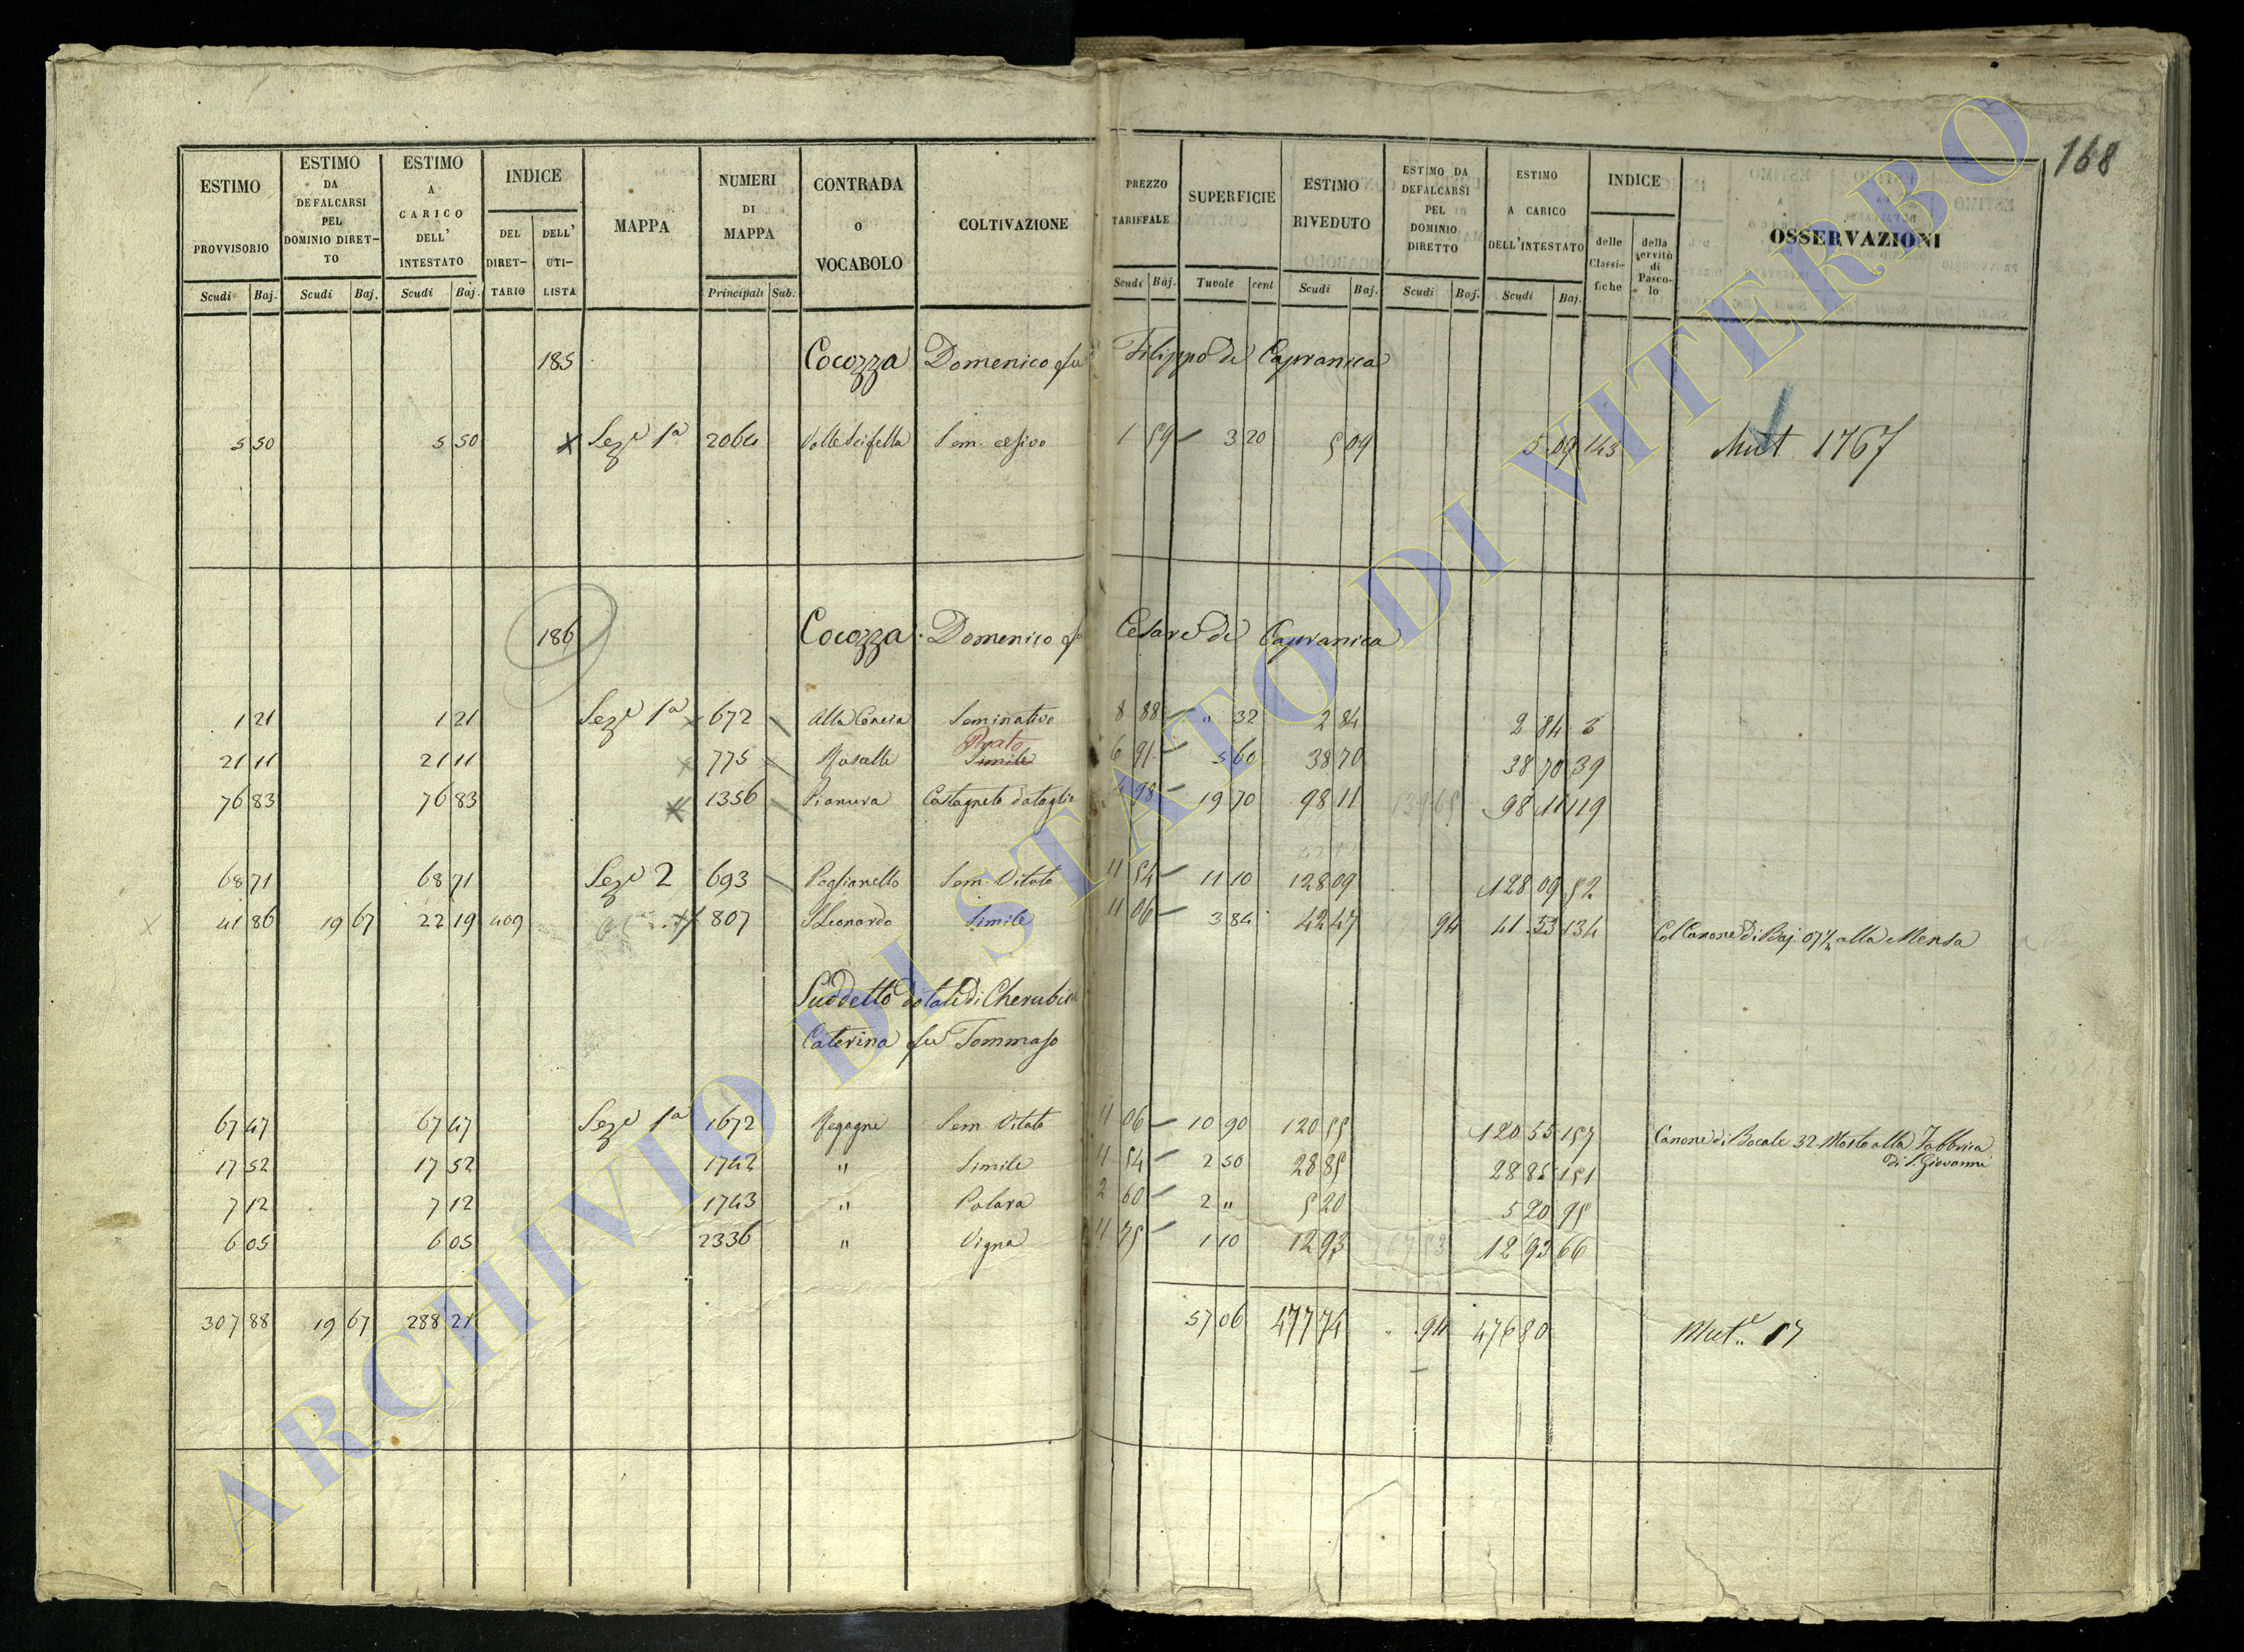 168
ESTIMO PROVVISORIO | ESTIMO DA DEFALCARSI PEL DOMINIO DIRET-TO | ESTIMO A CARICO DELL' INTESTATO | INDICE | MAPPA | NUMERI DI MAPPA | CONTRADA O VOCABOLO | COLTIVAZIONE | PREZZO TARIFFALE | SUPERFICIE | ESTIMO RIVEDUTO | ESTIMO DA DEFALCARSI PEL DOMINIO DIRETTO | ESTIMO A CARICO DELL'INTESTATO | INDICE | OSSERVAZIONI
DEL DIRET-TARIO | DELL' UTI-LISTA | delle Classi-fiche | della servitù di Pasco-lo
Scudi | Baj. | Scudi | Baj. | Scudi | Baj. | Principali | Sub. | Scudi | Baj. | Tavole | cent | Scudi | Baj. | Scudi | Baj. | Scudi | Baj.
185 Cocozza Domenico fu Filippo di Capranica
5 50 | 5 50 | Seze 1a | 2064 | Sem. | 1 59 | 3 20 | 5 09 | 5 09 | 143 | Mut. 1767
186 Cocozza Domenico fu Cesare di Capranica
1 21 | 1 21 | Seze 1a | 672 | Alla Concia | Seminativo | 8 88 | " 32 | 2 84 | 2 84 | 3
Prato
21 11 | 21 11 | 775 | Simile | 6 91 | 5 60 | 38 70 | 38 70 | 39
76 83 | 76 83 | 1356 | Pianura | Castagneto da taglio | 4 98 | 19 70 | 98 11 | 98 11 | 119
68 71 | 68 71 | Seze 2 | 693 | Poglianello | Sem. Vitato | 11 54 | 11 10 | 128 09 | 128 09 | 52
41 86 | 19 67 | 22 19 | 409 | 807 | S Leonardo | Simile | 11 06 | 3 84 | 42 47 | 94 | 41 53 | 134 | Col Canone di Baj. 07½ alla Mensa
Suddetto dotale di Cherubini
Caterina fu Tommaso
67 47 | 67 47 | Seze 1a | 1672 | Sem Vitato | 11 06 | 10 90 | 120 55 | 120 55 | 157 | Canone di Bocale 32 Mosto alla Fabbrica
di S. Giovanni
17 52 | 17 52 | 1742 | " | Simile | 11 54 | 2 50 | 28 85 | 28 85 | 151
7 12 | 7 12 | 1743 | " | 2 60 | 2 " | 5 20 | 5 20 | 95
6 05 | 6 05 | 2336 | " | Vigna | 11 75 | 1 10 | 12 93 | 12 93 | 66
307 88 | 19 67 | 288 21 | 57 06 | 477 74 | 94 | 476 80 | Mute 17
ARCHIVIO DI STATO DI VITERBO